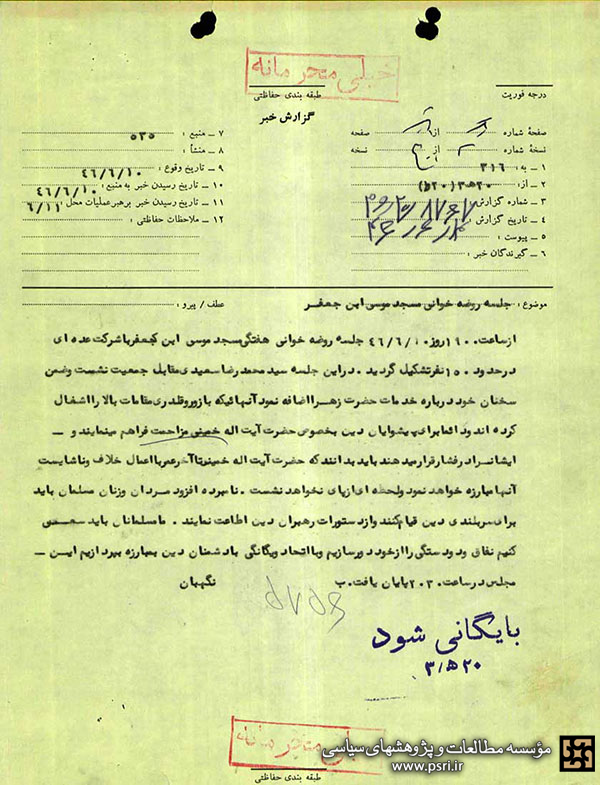 خیلی محرمانه
درجه فوریت
طبقه بندی حفاظتی
گزارش خبر
صفحهٔ شماره از صفحه
نسخهٔ شماره از نسخه
۱ - به : ۳۱۶
۲ - از : ۲۰ ه‍ ۳ (۲۰ ط)
۳ - شماره گزارش
۴ - تاریخ گزارش
۵ - پیوست :
۶ - گیرندگان خبر :
۷ - منبع : ۵۳۵
۸ - منشأ :
۹ - تاریخ وقوع : ۴۶/۶/۱۰
۱۰ - تاریخ رسیدن خبر به منبع : ۴۶/۶/۱۰
۱۱ - تاریخ رسیدن خبر برهبر عملیات محل : ۶/۱۱
۱۲ - ملاحظات حفاظتی :
موضوع : جلسه روضه خوانی مسجد موسی ابن جعفر
عطف / پیرو :
از ساعت ۱۹۰۰ روز ۴۶/۶/۱۰ جلسه روضه خوانی هفتگی مسجد موسی ابن جعفر با شرکت عده ای
در حدود ۱۵۰ نفر تشکیل گردید . در این جلسه سید محمد رضا سعیدی مقابل جمعیت نشست وضمن
سخنان خود درباره خدمات حضرت زهرا اضافه نمود آنهائیکه با زور وقلدری مقامات بالا را اشغال
کرده اند ودائما برای پیشوایان دین بخصوص حضرت آیت اله خمینی مزاحمت فراهم مینمایند و -
ایشانرا در فشار قرار میدهند باید بدانند که حضرت آیت اله خمینی تا آخر عمر با اعمال خلاف وناشایست
آنها مبارزه خواهد نمود ولحظه ای از پای نخواهد نشست . نامبرده افزود مردان وزنان مسلمان باید
برای سربلندی دین قیام کنند واز دستورات رهبران دین اطاعت نمایند . ما مسلمانان باید سعی
کنیم نفاق ودودستگی را از خود دور سازیم وبا اتحاد ویگانگی با دشمنان دین بمبارزه بپردازیم این -
مجلس در ساعت ۲۰۳۰ پایان یافت . ب
نگهبان
بایگانی شود
۲۰ ه‍ ۳
خیلی محرمانه
طبقه بندی حفاظتی
مؤسسه مطالعات و پژوهشهای سیاسی
www.psri.ir